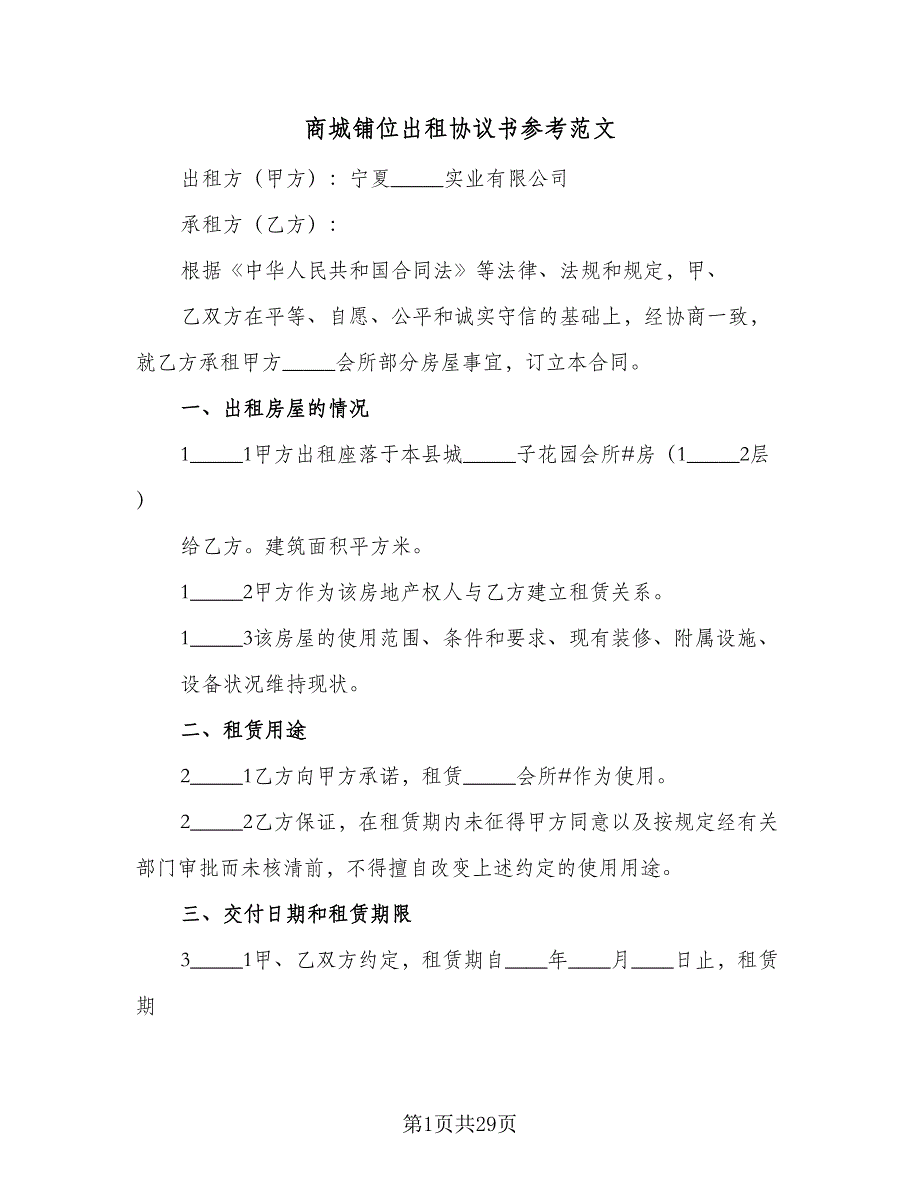 商城铺位出租协议书参考范文
出租方（甲方）：宁夏_____实业有限公司
承租方（乙方）：
根据《中华人民共和国合同法》等法律、法规和规定，甲、
乙双方在平等、自愿、公平和诚实守信的基础上，经协商一致，
就乙方承租甲方_____会所部分房屋事宜，订立本合同。
一、出租房屋的情况
1_____1甲方出租座落于本县城_____子花园会所#房（1_____2层
）
给乙方。建筑面积平方米。
1_____2甲方作为该房地产权人与乙方建立租赁关系。
1_____3该房屋的使用范围、条件和要求、现有装修、附属设施、
设备状况维持现状。
二、租赁用途
2_____1乙方向甲方承诺，租赁_____会所#作为使用。
2_____2乙方保证，在租赁期内未征得甲方同意以及按规定经有关
部门审批而未核清前，不得擅自改变上述约定的使用用途。
三、交付日期和租赁期限
3_____1甲、乙双方约定，租赁期自____年____月____日止，租赁
期
第1页共29页